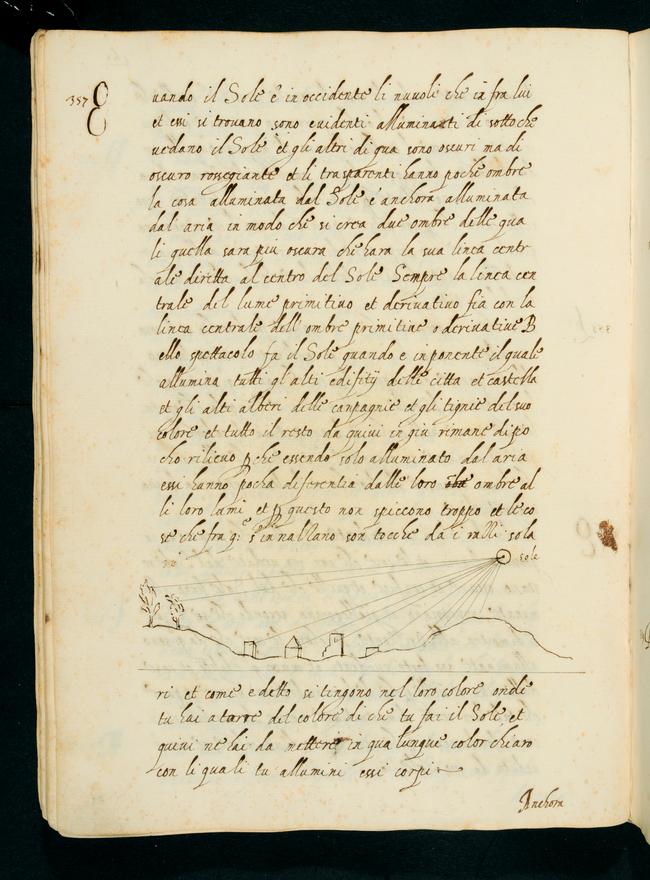 357
uando il Sole è in occidente li nuvoli che in fra lui
et essi si trouano sono euidenti alluminanti di sotto che
uedano il Sole et gli altri di qua sono oscuri ma di
oscuro rossegiante et li trasparenti hanno poche ombre
la cosa alluminata dal Sole è anchora alluminata
dal aria in modo che si crea due ombre delle qua
li quella sara piu oscura che hara la sua linea centr
ale diritta al centro del Sole Sempre la linea cen
trale del lume primitiuo et deriuatiuo fia con la
linea centrale dell ombre primitiue o deriuatiue B
ello spettacolo fa il Sole quando e in ponente il quale
allumina tutti gl alti edifitij delle citta et castella
et gli alti alberi delle canpagnie et gli tignie del suo
colore et tutto il resto da quiui in giu rimane di po
cho rilieuo che essendo solo alluminato dal aria
essi hanno pocha diferentia dalle loro ombre al
li loro lumi et questo non spiccono troppo et le co
se che fra innalzano son tocche da i razzi sola
sole
ri et come e detto si tingono nel loro colore onde
tu hai a torre del colore di che tu fai il Sole et
quiui ne lai da mettere in qua lunque color chiaro
con li quali tu allumini essi corpi
Anchora